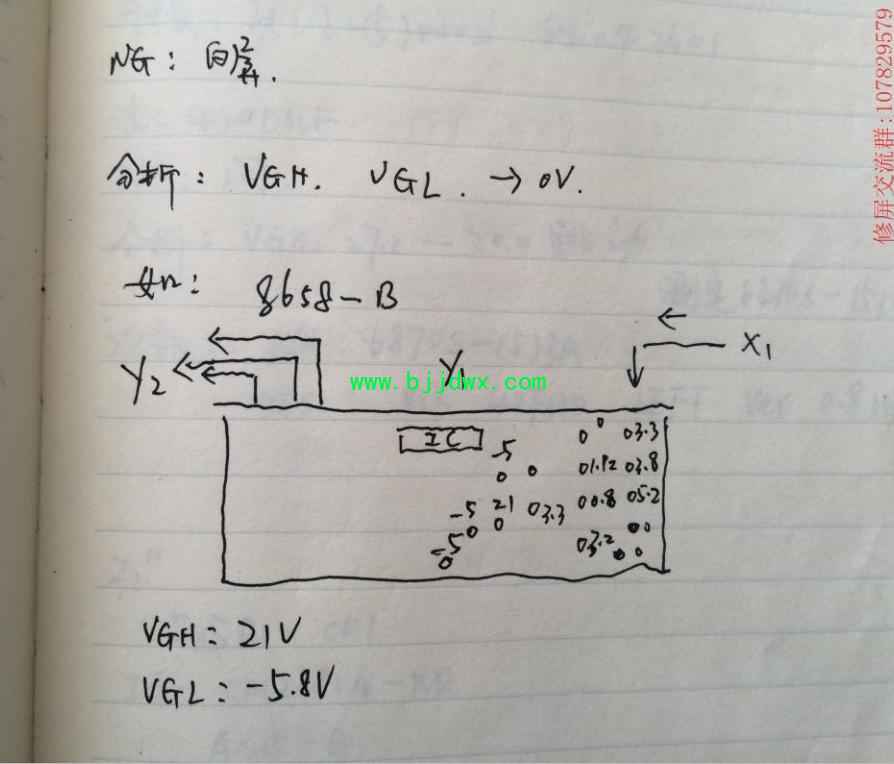 NG: 白屏.
分析: VGH. VGL. → 0V.
如: 8658-B
X1
Y2
Y1
www.bjjdwx.com
IC
-5
03.3
01.12 03.8
-5 21 03.3 00.8 05.2
-5
03.2
VGH = 21V
VGL = -5.8V
修屏交流群:107829579